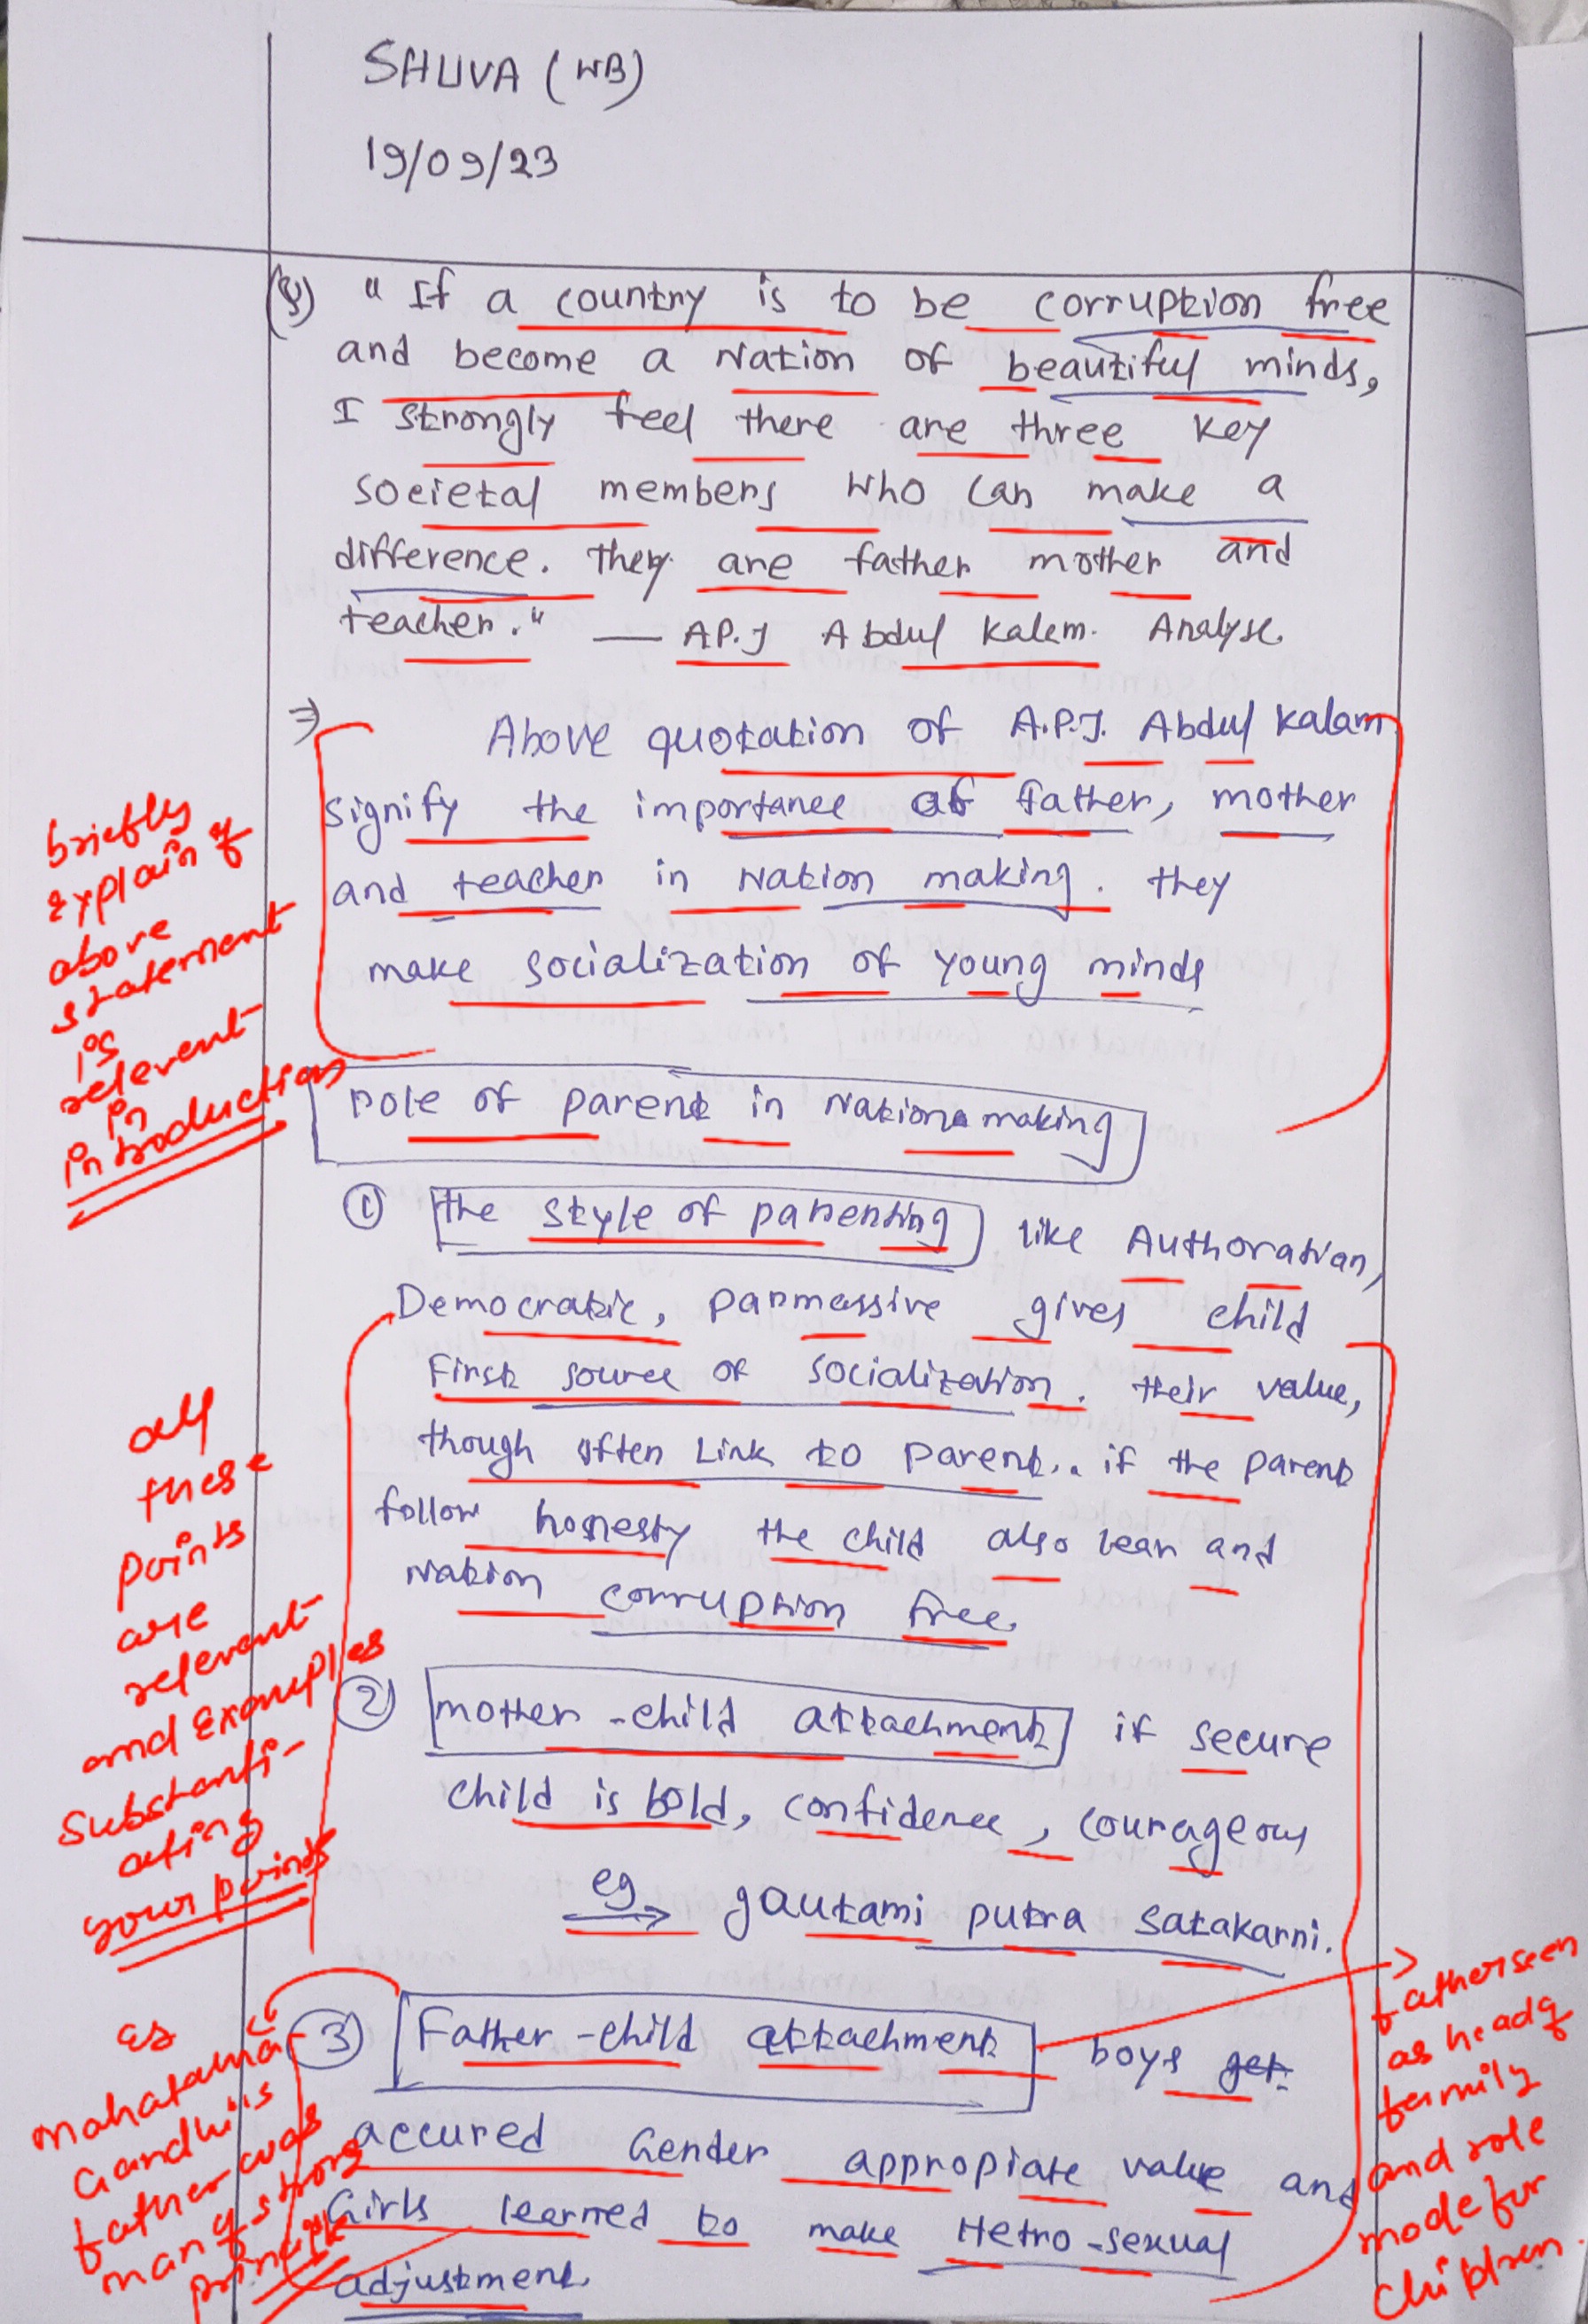 SHUVA (WB)
19/09/23
(Q) "If a country is to be corruption free
and become a Nation of beautiful minds,
I strongly feel there are three key
societal members who can make a
difference. They are father mother and
teacher." — AP.J Abdul Kalem. Analyse.
⇒ Above quotation of A.P.J. Abdul Kalam
signify the importance of father, mother
and teacher in Nation making. they
make socialization of young minds
briefly
explain of
above
statement
is
relevent
in
introduction
Role of parent in Nation making
① the style of parenting like Authoration,
Democratic, parmessive gives child
First source of socialization. their value,
though often Link to parent.. if the parent
follow honesty the child also lean and
Nation corruption free.
all
these
points
are
relevent
and Examples
substanti-
ating
your points
② mother-child attachment if secure
child is bold, confidence, courageous
eg → gautami putra Satakarni.
③ Father-child attachment boys get
accured Gender appropiate value and
Girls learned to make Hetro-sexual
adjustment.
es
Mahatama
Gandhi's
father was
man of strong
principle
father seen
as head of
family
and role
mode for
children.